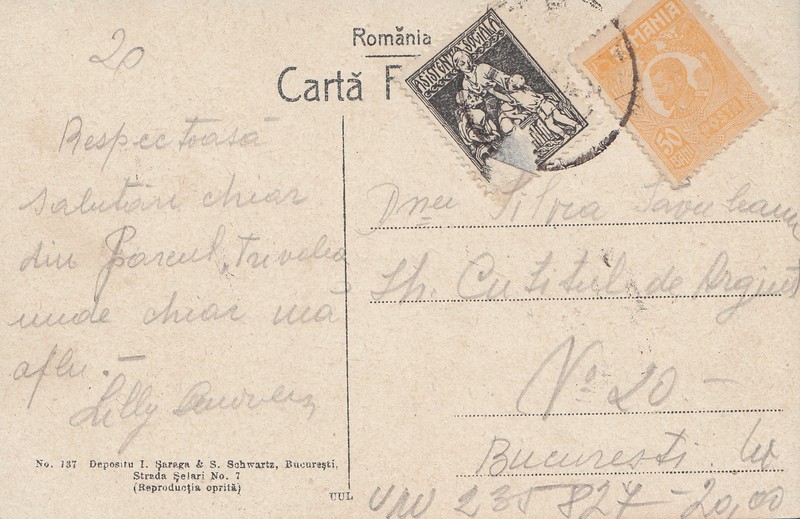 20
România
Cartă
ASISTENȚA SOCIALĂ
ROMANIA
50 BANI
POSTA
Respectoasă
salutări chiar
din Parcul Trivelea
unde chiar mă
aflu. —
Lilly
Dnei Silvia
Str. Cuțitul de Argint
No 20 —
București.
No. 137 Depositu I. Șaraga & S. Schwartz, București,
Strada Șelari No. 7
(Reproducția oprită)
UUL
235 827 - 20,00